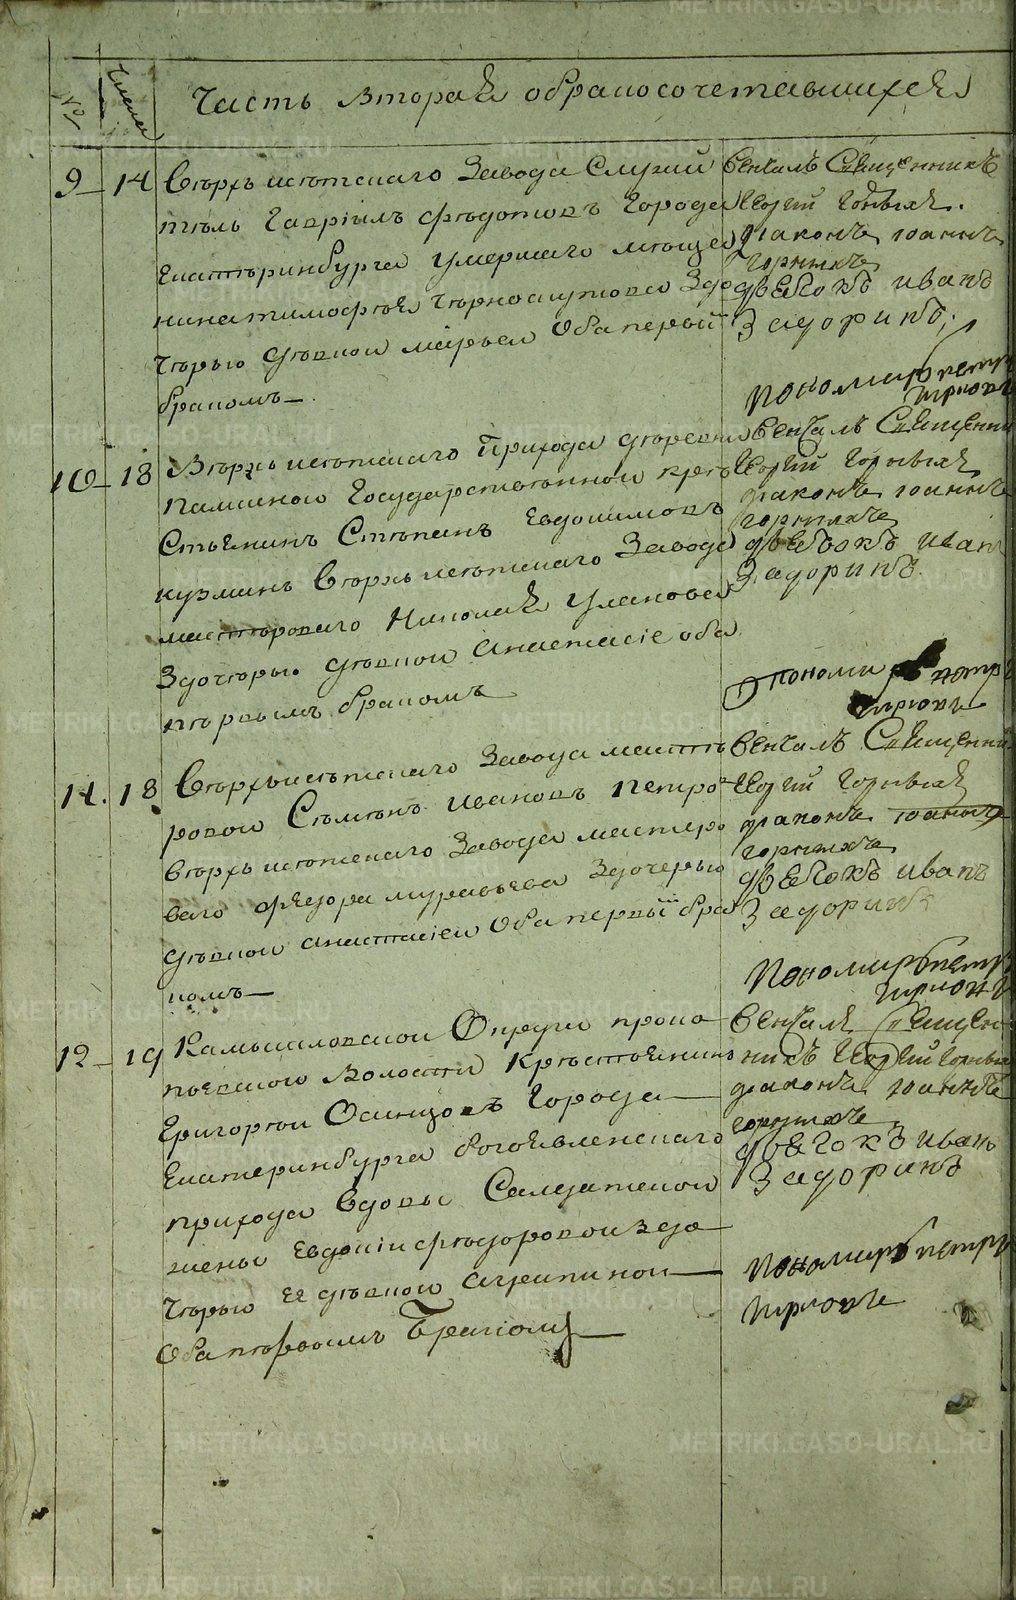 METRIKI.GASO-URAL.RU METRIKI.GASO-URAL.RU
№ Числа Часть вторая о бракосочетавшихся
9 14 Верхъ исетскаго завода служи
тель Гавріилъ Федотовъ города
Екатеринбурга умершаго меща
нина Тимофея Черноскутова здо
черью девкой Марьей оба первый
бракомъ
Венчалъ Священникъ
Георгий Горныхъ
диаконъ Иоаннъ
Горныхъ
дьячокъ Иванъ
Задоринъ
пономарь Петръ
10 18 Верхъ исетскаго прихода деревни
государственной крес
стьянинъ Степанъ Евдокимовъ
Кузминъ Верхъ исетскаго завода
мастероваго Николая Уланова
здочерью девкой Анастасіе оба
первымъ бракомъ
Венчалъ Священни
Георгий Горныхъ
диаконъ Иоаннъ
Горныхъ
дьячокъ Иван
Задоринъ
пономарь Петръ
11. 18 Верхъисетскаго завода масте
ровой Семенъ Ивановъ Петро
Верхъ исетскаго завода мастеро
ваго Федора Муравьева здочерью
девкой Анастасіей оба первый бра
комъ
Венчалъ Священни
Георгий Горныхъ
диаконъ Иоаннъ
Горныхъ
дьячокъ Иванъ
Задоринъ
пономарь Петръ
12 19 Камышловской округи
волости крестьянинъ
Григорей Осинцовъ города
Екатеринбурга Богоявленскаго
прихода вдовы салдатской
жены Евдокіи Федоровой здо
черью ее девкой Агрипиной
оба первымъ бракомъ
Венчалъ Священ
никъ Георгий Горных
диаконъ Иоаннъ
Горныхъ
дьячокъ Иванъ
Задоринъ
пономарь Петръ
METRIKI.GASO-URAL.RU METRIKI.GASO-URAL.RU